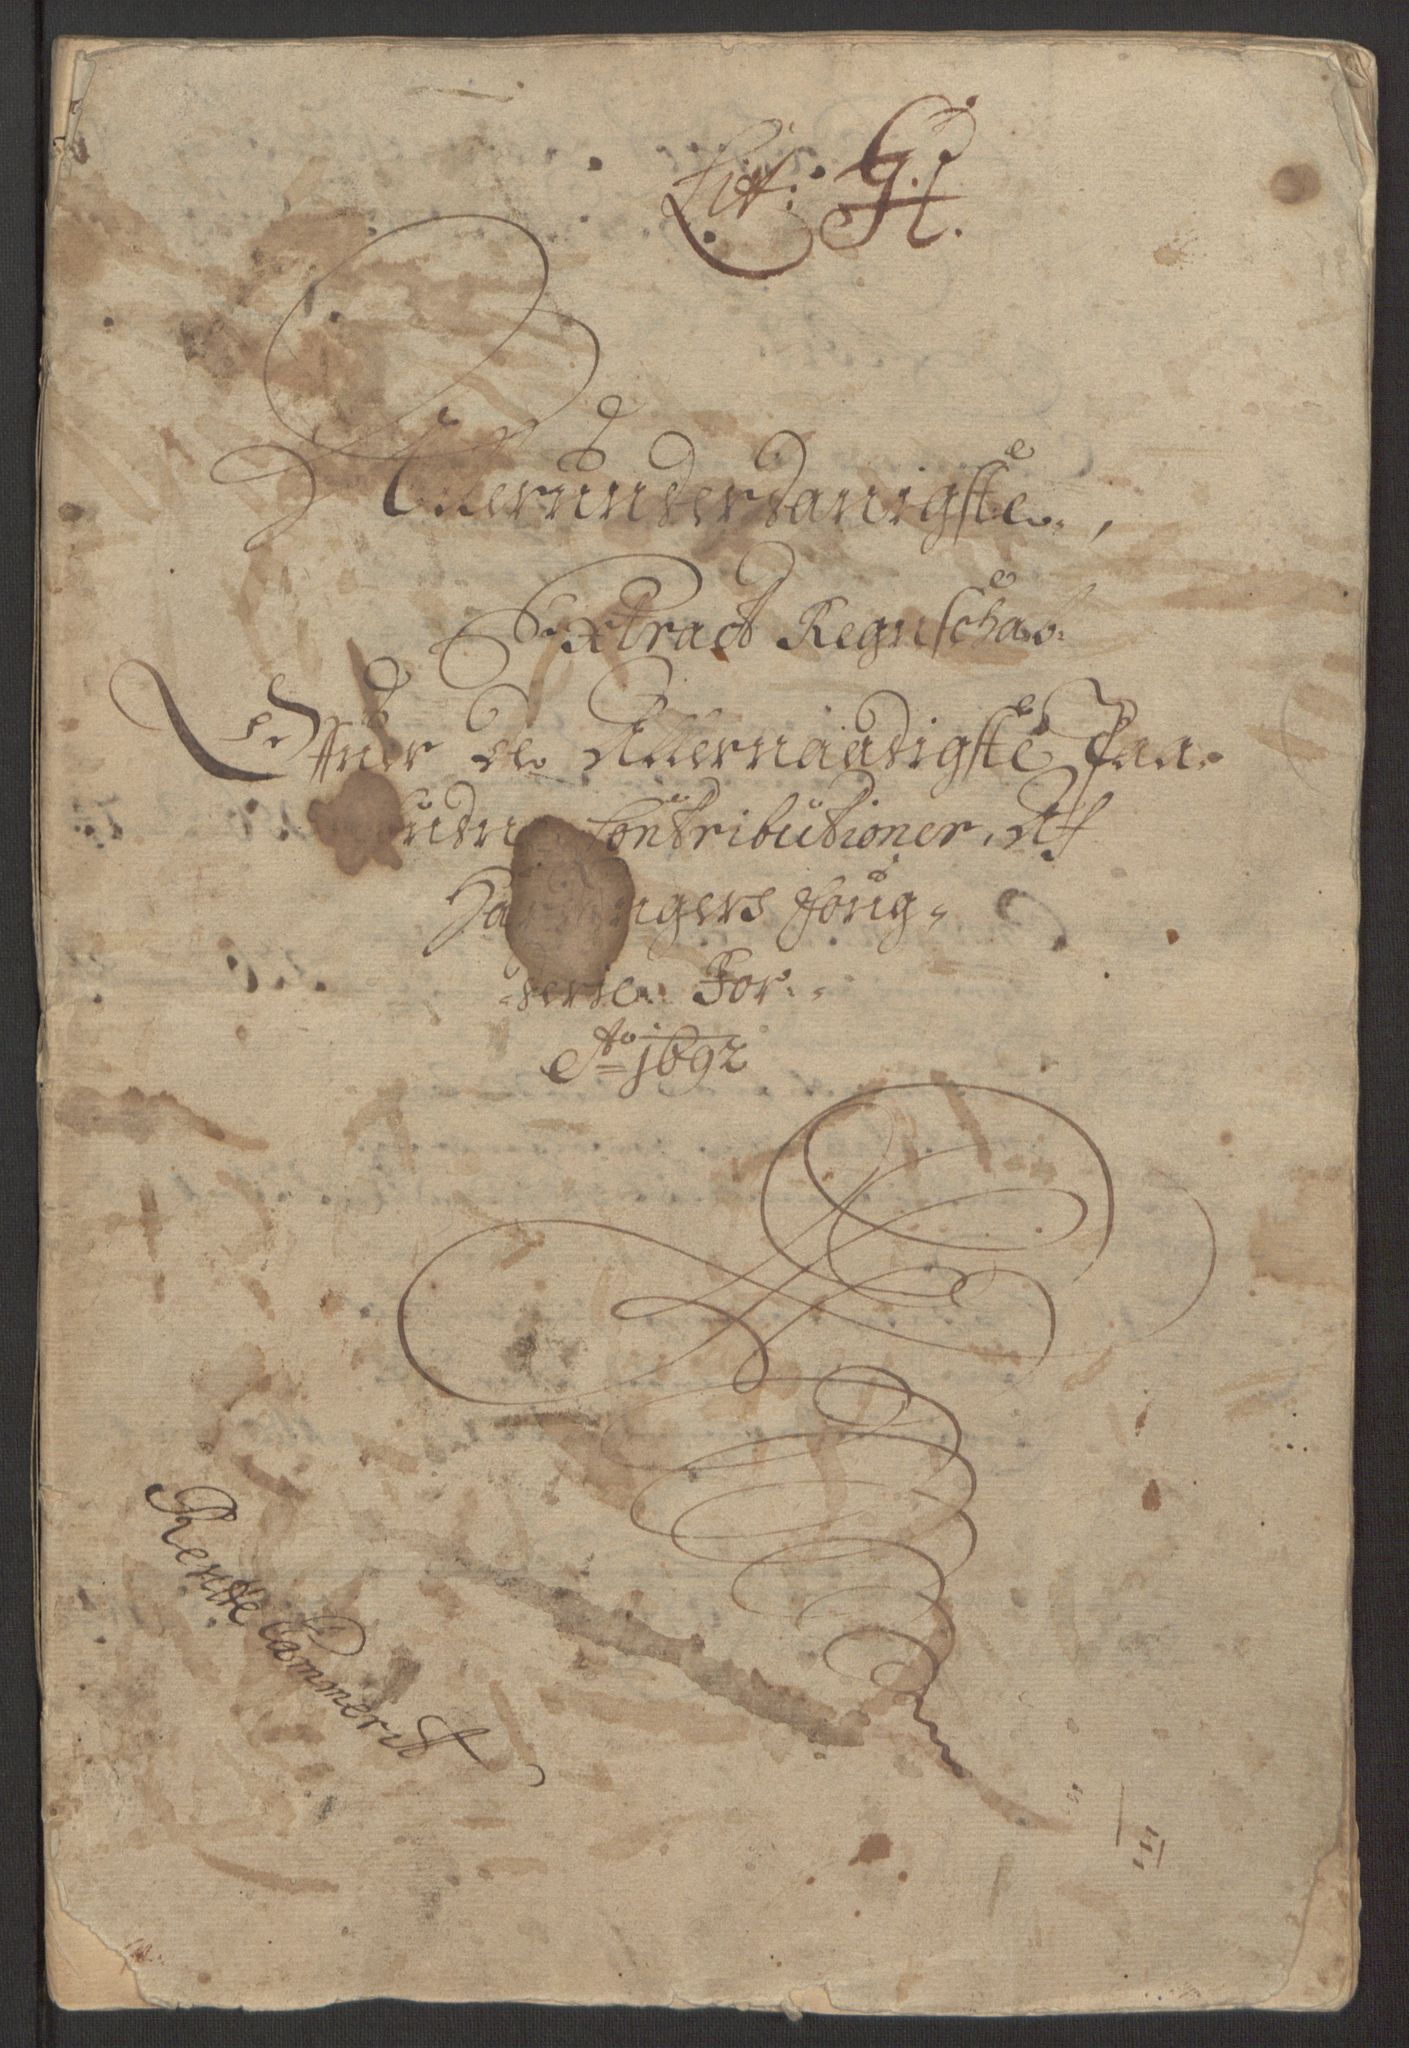 Litr: G.
Allerunderdanigste
Extract Regnschab
Effter de Allernaadigste Paa-
budne Contributioner, Af
Hardangers Foug-
derie For
Ao 1692
Rente Cammerit